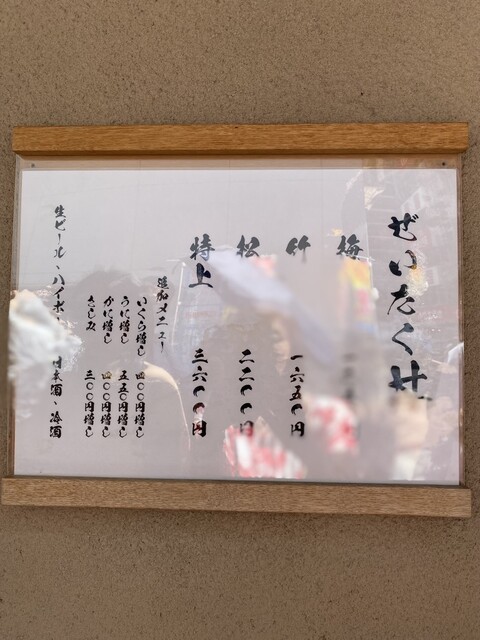 ぜいたく丼
梅
竹 一六五〇円
松 二二〇〇円
特上 三六〇〇円
追加メニュー
いくら増し 四〇〇円増し
うに増し 五五〇円増し
かに増し 四〇〇円増し
さしみ 三〇〇円増し
生ビール、ハイボ 日本酒、冷酒